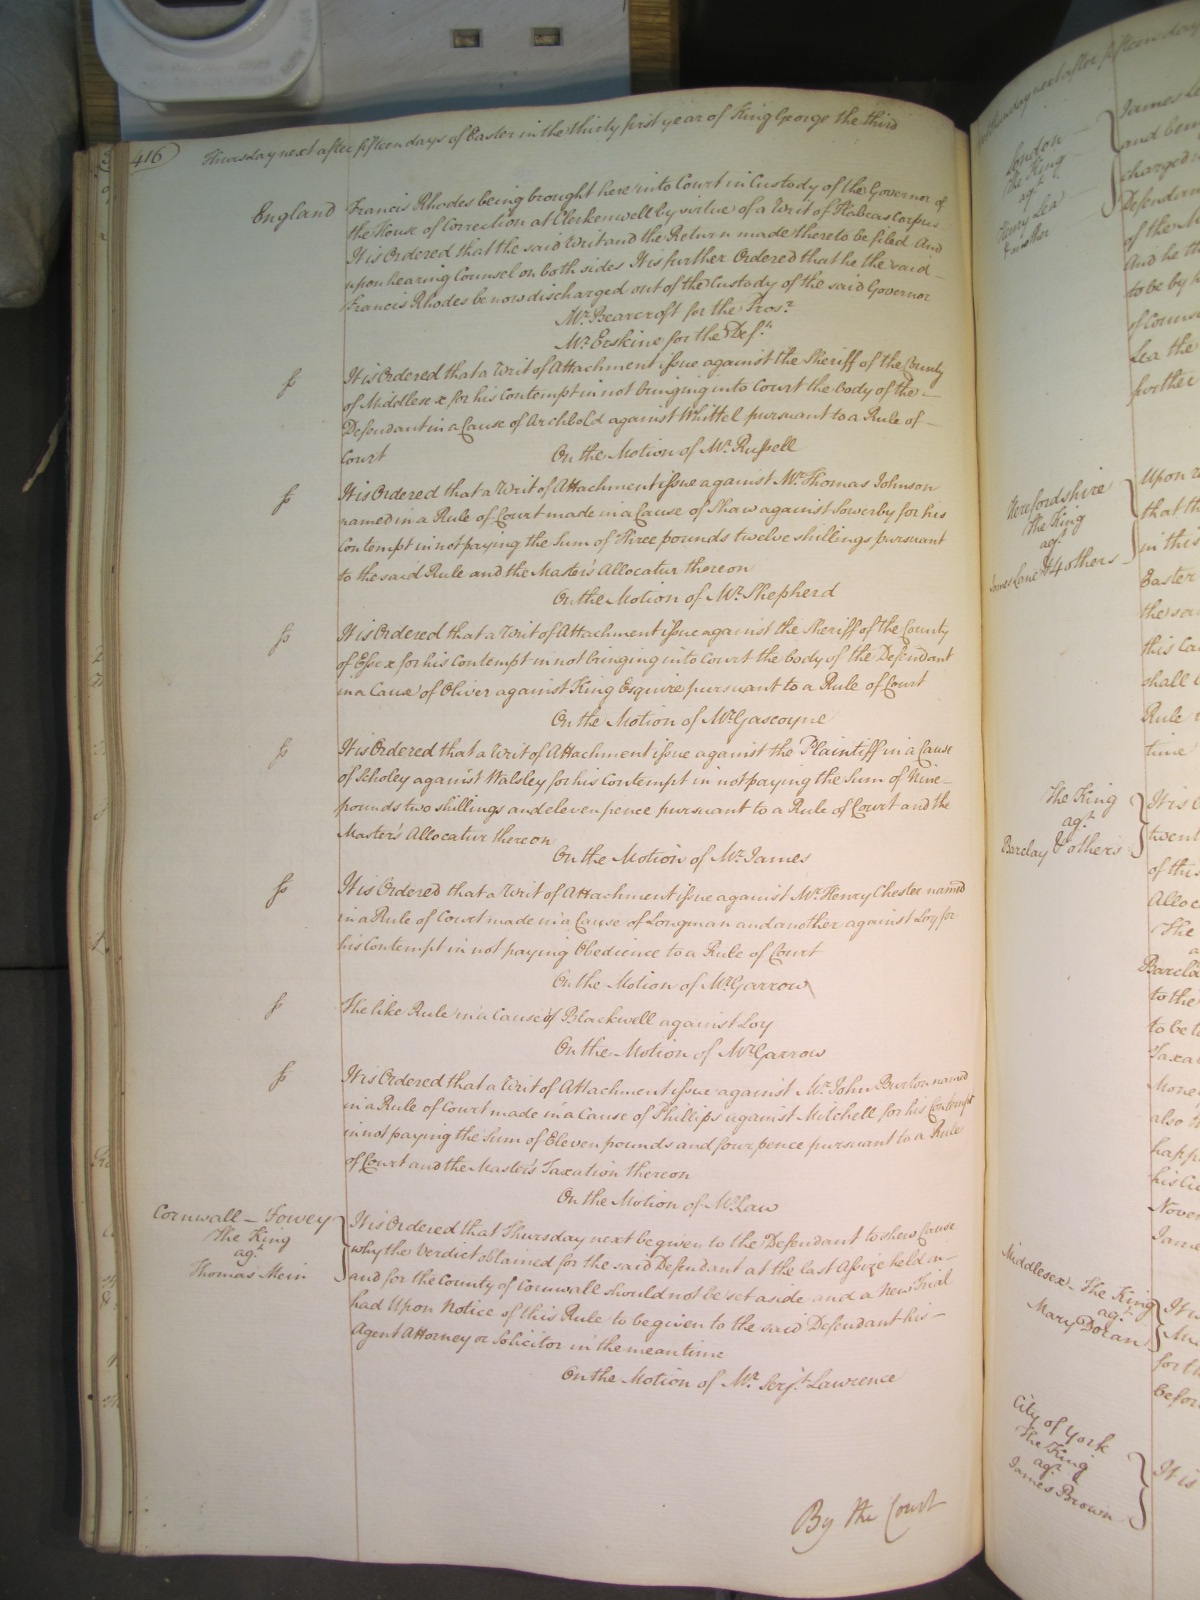 416
Thursday next after fifteen days of Easter in the thirty first year of King George the third
England
Francis Rhodes being brought here into Court in Custody of the Governor of
the House of Correction at Clerkenwell by virtue of a Writ of Habeas Corpus
It is Ordered that the said Writ and the Return made thereto be filed And
upon hearing Counsel on both sides It is further Ordered that he the said
Francis Rhodes be now discharged out of the Custody of the said Governor
Mr. Bearcroft for the Prosr.
Mr. Erskine for the Deft.
It is Ordered that a Writ of Attachment issue against the Sheriff of the County
of Middlesex for his Contempt in not bringing into Court the body of the
Defendant in a Cause of Archbold against Whittel pursuant to a Rule of
Court
On the Motion of Mr. Russell
It is Ordered that a Writ of Attachment issue against Mr. Thomas Johnson
named in a Rule of Court made in a Cause of Shaw against Sowerby for his
Contempt in not paying the Sum of Three pounds twelve shillings pursuant
to the said Rule and the Master's Allocatur thereon
On the Motion of Mr. Shepherd
It is Ordered that a Writ of Attachment issue against the Sheriff of the County
of Essex for his Contempt in not bringing into Court the body of the Defendant
in a Cause of Oliver against King Esquire pursuant to a Rule of Court
On the Motion of Mr. Gascoyne
It is Ordered that a Writ of Attachment issue against the Plaintiff in a Cause
of Scholey against Walsley for his Contempt in not paying the Sum of Nine
pounds two shillings and eleven pence pursuant to a Rule of Court and the
Master's Allocatur thereon
On the Motion of Mr. James
It is Ordered that a Writ of Attachment issue against Mr. Henry Chester named
in a Rule of Court made in a Cause of Longman and another against Loy for
his Contempt in not paying Obedience to a Rule of Court
On the Motion of Mr. Garrow
The like Rule in a Cause of Blackwell against Loy
On the Motion of Mr. Garrow
It is Ordered that a Writ of Attachment issue against Mr. John Burton named
in a Rule of Court made in a Cause of Phillips against Mitchell for his Contempt
in not paying the Sum of Eleven pounds and four pence pursuant to a Rule
of Court and the Master's Taxation thereon
On the Motion of Mr. Law
Cornwall - Fowey
The King
agt.
Thomas Mein
It is Ordered that Thursday next be given to the Defendant to shew Cause
why the Verdict obtained for the said Defendant at the last Assize held in
and for the County of Cornwall should not be set aside and a New Trial
had Upon Notice of this Rule to be given to the said Defendant his
Agent Attorney or Solicitor in the mean time
On the Motion of Mr. Serjt. Lawrence
By the Court
next after fifteen days
London
The King
agt.
Henry Lea
& another
James Le
and bein
charged
Defendan
of the M
And he th
to be by
of Couns
Lea the
further
Herefordshire
The King
agt.
James Lane & 4 others
Upon r
that th
in this
Easter
the sa
this Ca
shall b
Rule
time
The King
agt.
Barclay & others
It is
twent
of this
Alloc
The
Barcla
to the
to be t
Taxa
Mone
also
happ
his Co
Novem
Jame
Middlesex - The King
agt.
Mary Doran
It is
for th
befor
City of York
The King
agt.
James Brown
It is